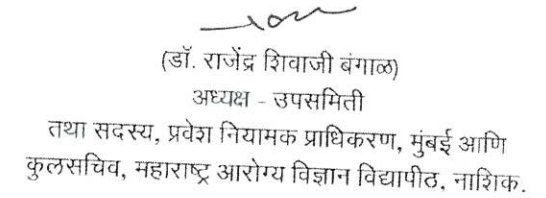 (डॉ. राजेंद्र शिवाजी बंगाळ)
अध्यक्ष - उपसमिती
तथा सदस्य, प्रवेश नियामक प्राधिकरण, मुंबई आणि
कुलसचिव, महाराष्ट्र आरोग्य विज्ञान विद्यापीठ, नाशिक.